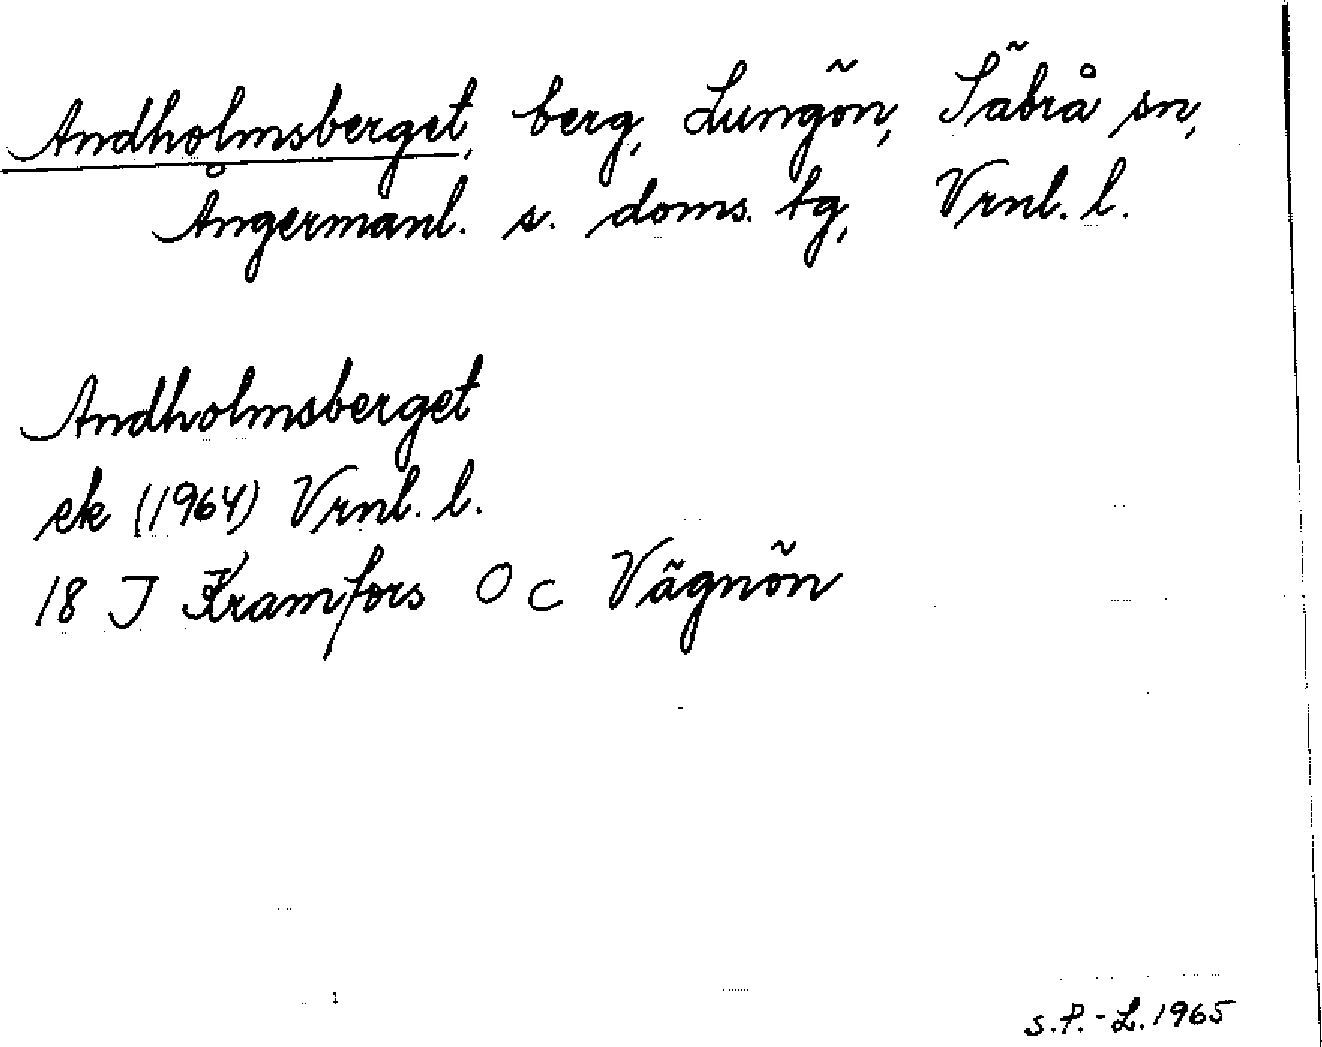 Andholmsberget, berg, Lungön, Säbrå sn,
Ångermanl. s. doms. tg, Vrnl. l.
Andholmsberget
ek (1964) Vrnl. l.
18 J Kramfors O c Vägnön
1
S.P.-L. 1965